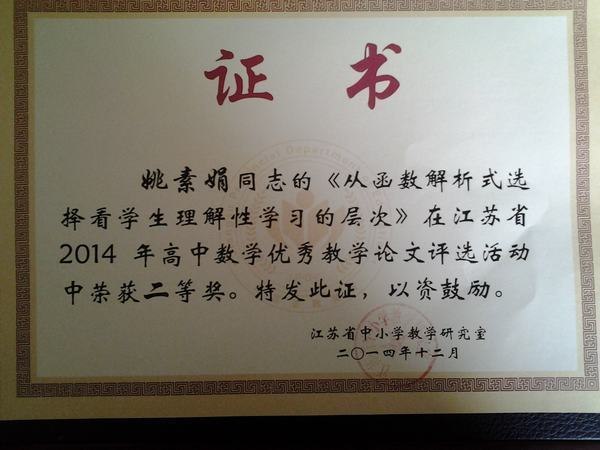 证书
姚素娟同志的《从函数解析式选
择看学生理解性学习的层次》在江苏省
2014 年高中数学优秀教学论文评选活动
中荣获二等奖。特发此证，以资鼓励。
江苏省中小学教学研究室
二〇一四年十二月